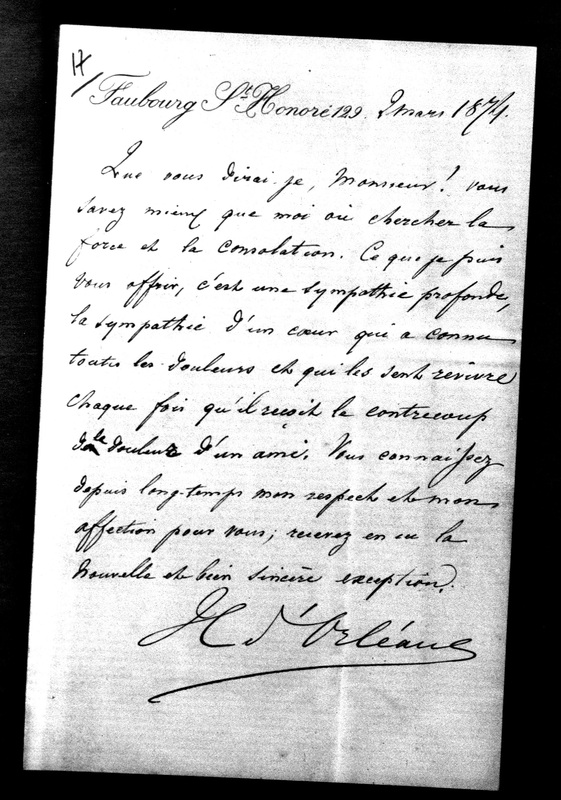 17/
Faubourg St Honoré 129. 2 mars 1874.
Que vous dirai-je, Monsieur! vous
savez mieux que moi où chercher la
force et la consolation. Ce que je puis
vous offrir, c'est une sympathie profonde,
la sympathie d'un cœur qui a connu
toutes les douleurs et qui les sent revivre
chaque fois qu'il reçoit le contrecoup
de la douleur d'un ami. Vous connaissez
depuis long-temps mon respect et mon
affection pour vous; recevez en ici la
nouvelle et bien sincère exception.
H d'Orléans